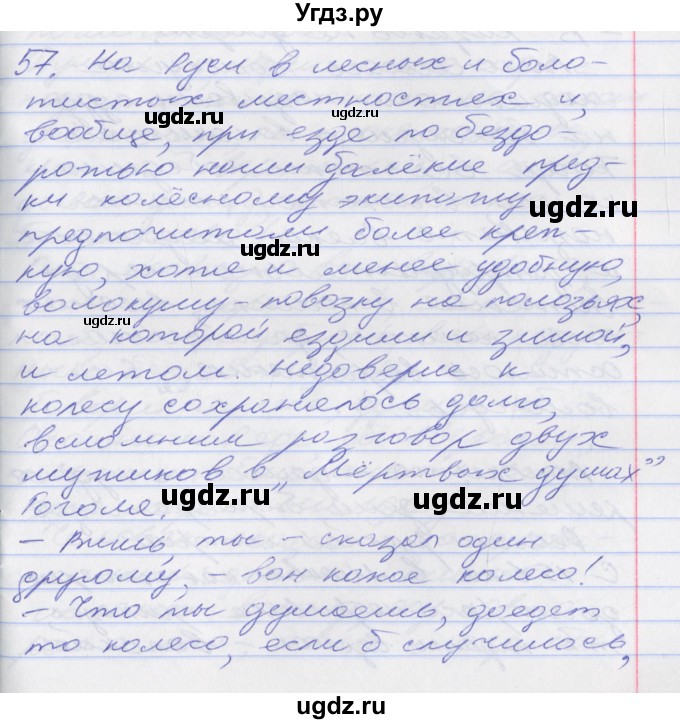 Угдз.ру
57. На Руси в лесных и боло-
тистых местностях и,
ugdz.ru
вообще, при езде по бездо-
ugdz.ru
рожью наши далёкие пред-
ки колёсному экипажу
ugdz.ru
предпочитали более креп-
ugdz.ru
кую, хотя и менее удобную,
волокушу - повозку на полозьях,
ugdz.ru
на которой ездили и зимой,
и летом. Недоверие к
колесу сохранялось долго,
вспомним разговор двух
мужиков в „Мёртвых душах”
ugdz.ru
ugdz.ru
Гоголя.
- Вишь ты - сказал один
другому, - вон какое колесо!
ugdz.ru
ugdz.ru
- Что ты думаешь, доедет
то колесо, если б случилось,
ugdz.ru
ugdz.ru